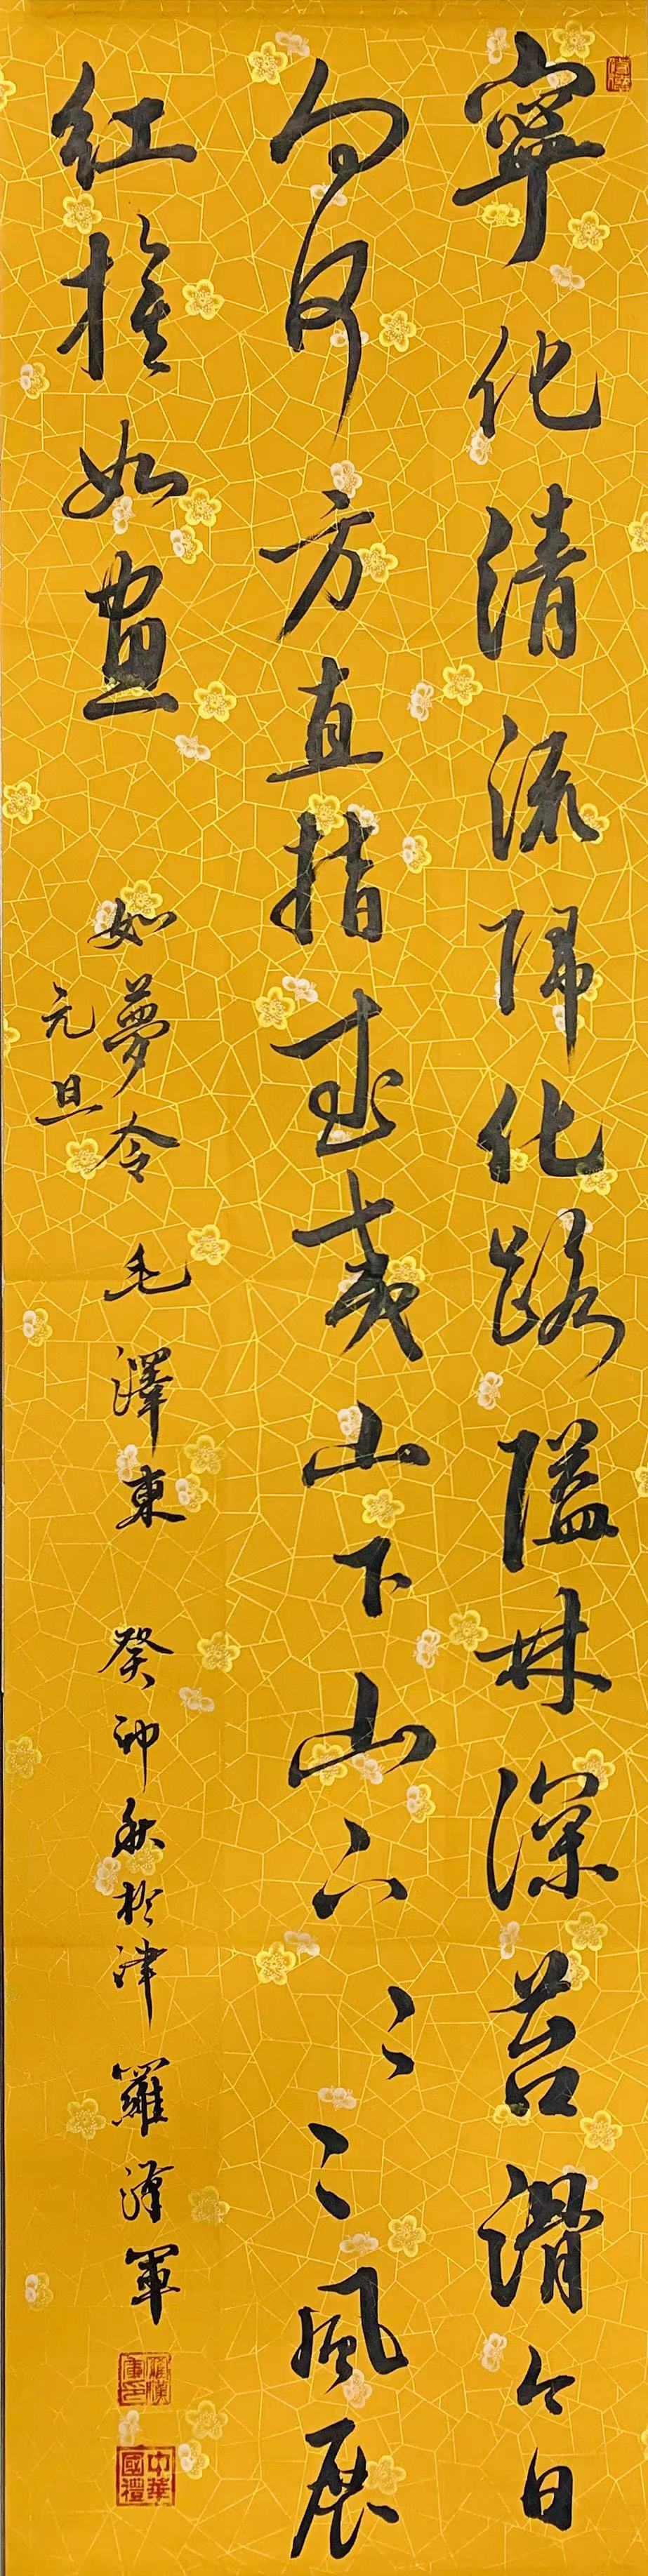 寧化清流歸化路隘林深苔滑今日
向何方直指武夷山下山下〻〻風展
紅旗如畫
如夢令 毛澤東 癸卯秋於津 羅漢軍
元旦
羅漢軍印
中華國禮